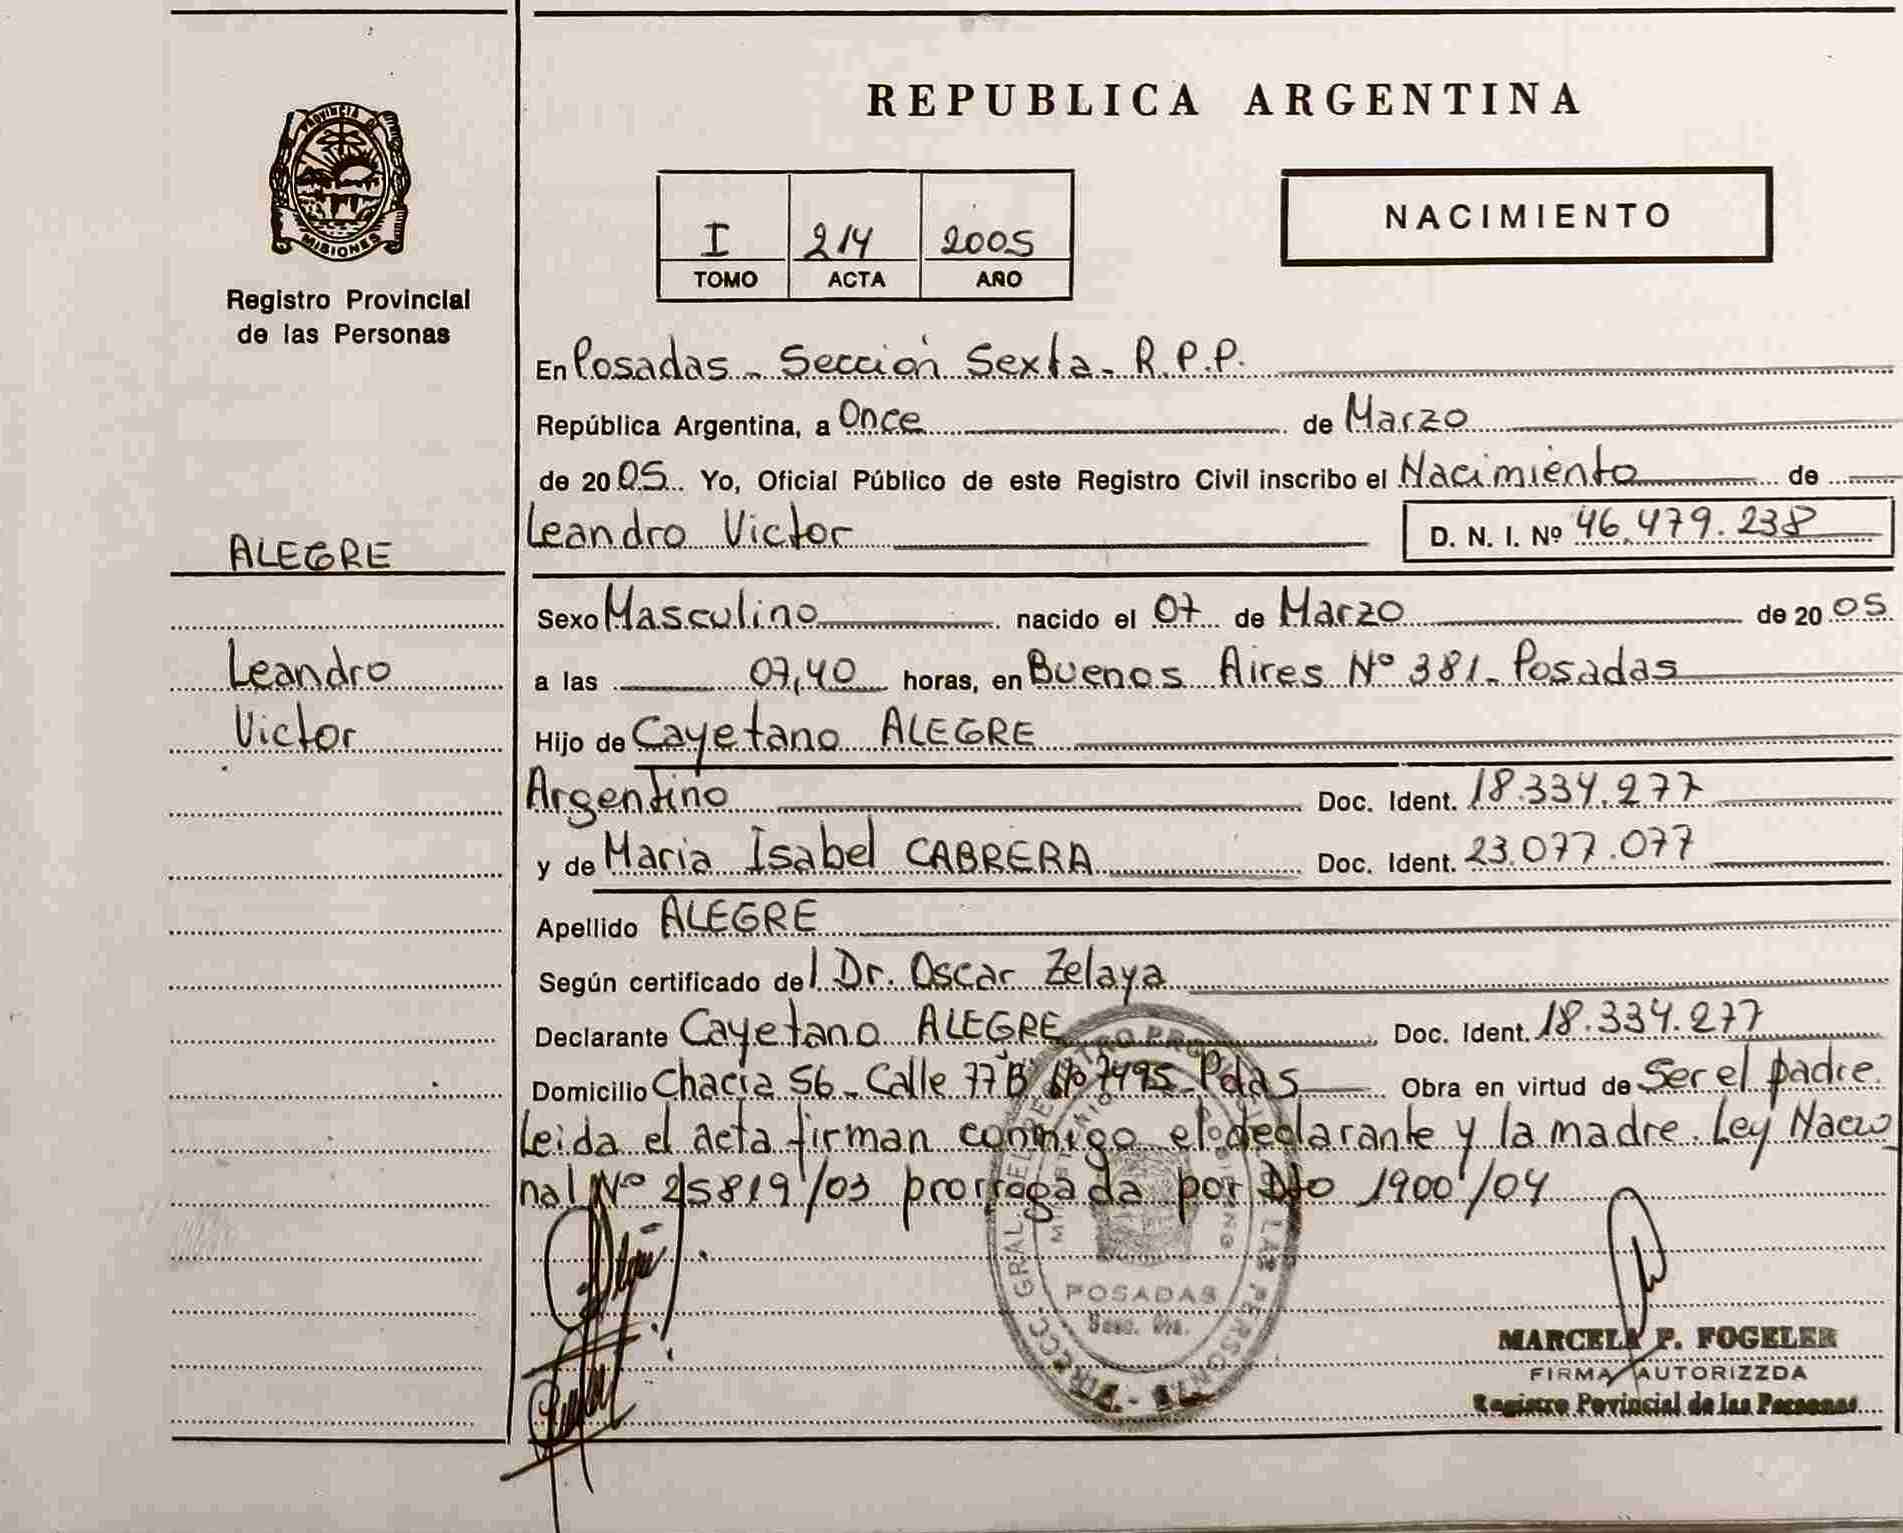 REPUBLICA ARGENTINA
PROVINCIA DE
MISIONES
Registro Provincial
de las Personas
I 214 2005
TOMO ACTA AÑO
NACIMIENTO
En Posadas - Sección Sexta - R.P.P.
República Argentina, a Once de Marzo
de 2005 Yo, Oficial Público de este Registro Civil inscribo el Nacimiento de
Leandro Victor D. N. I. Nº 46.479.238
ALEGRE
Leandro
Victor
Sexo Masculino nacido el 07 de Marzo de 2005
a las 07,40 horas, en Buenos Aires Nº 381 - Posadas
Hijo de Cayetano ALEGRE
Argentino Doc. Ident. 18.334.277
y de Maria Isabel CABRERA Doc. Ident. 23.077.077
Apellido ALEGRE
Según certificado del Dr. Oscar Zelaya
Declarante Cayetano ALEGRE Doc. Ident. 18.334.277
Domicilio Chacra 56 - Calle 77 B Nº 7495 - Pdas Obra en virtud de Ser el padre.
Leida el acta firman conmigo el declarante y la madre. Ley Nacio
nal Nº 25819/03 prorrogada por Dto 1900/04
POSADAS
MARCELA P. FOGELER
FIRMA AUTORIZZDA
Registro Povincial de las Personas